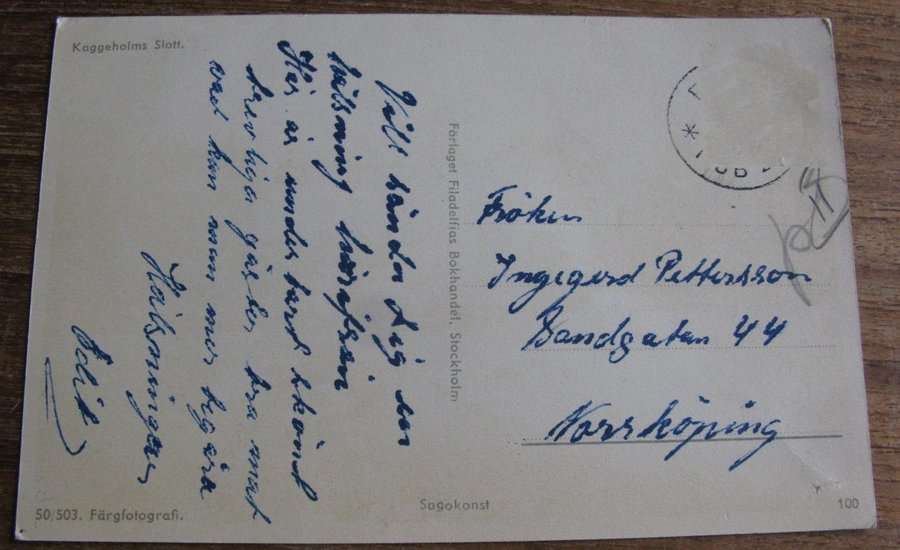 Kaggeholms Slott.
Vill sända dig en
hälsning härifrån
Här är underbart skönt
trevliga gäster bra mat
vad kan man mer begära
Hälsningar
Förlaget Filadelfias Bokhandel, Stockholm
Fröken
Ingegerd Pettersson
Sandgatan 44
Norrköping
50/503. Färgfotografi.
Sagokonst
100